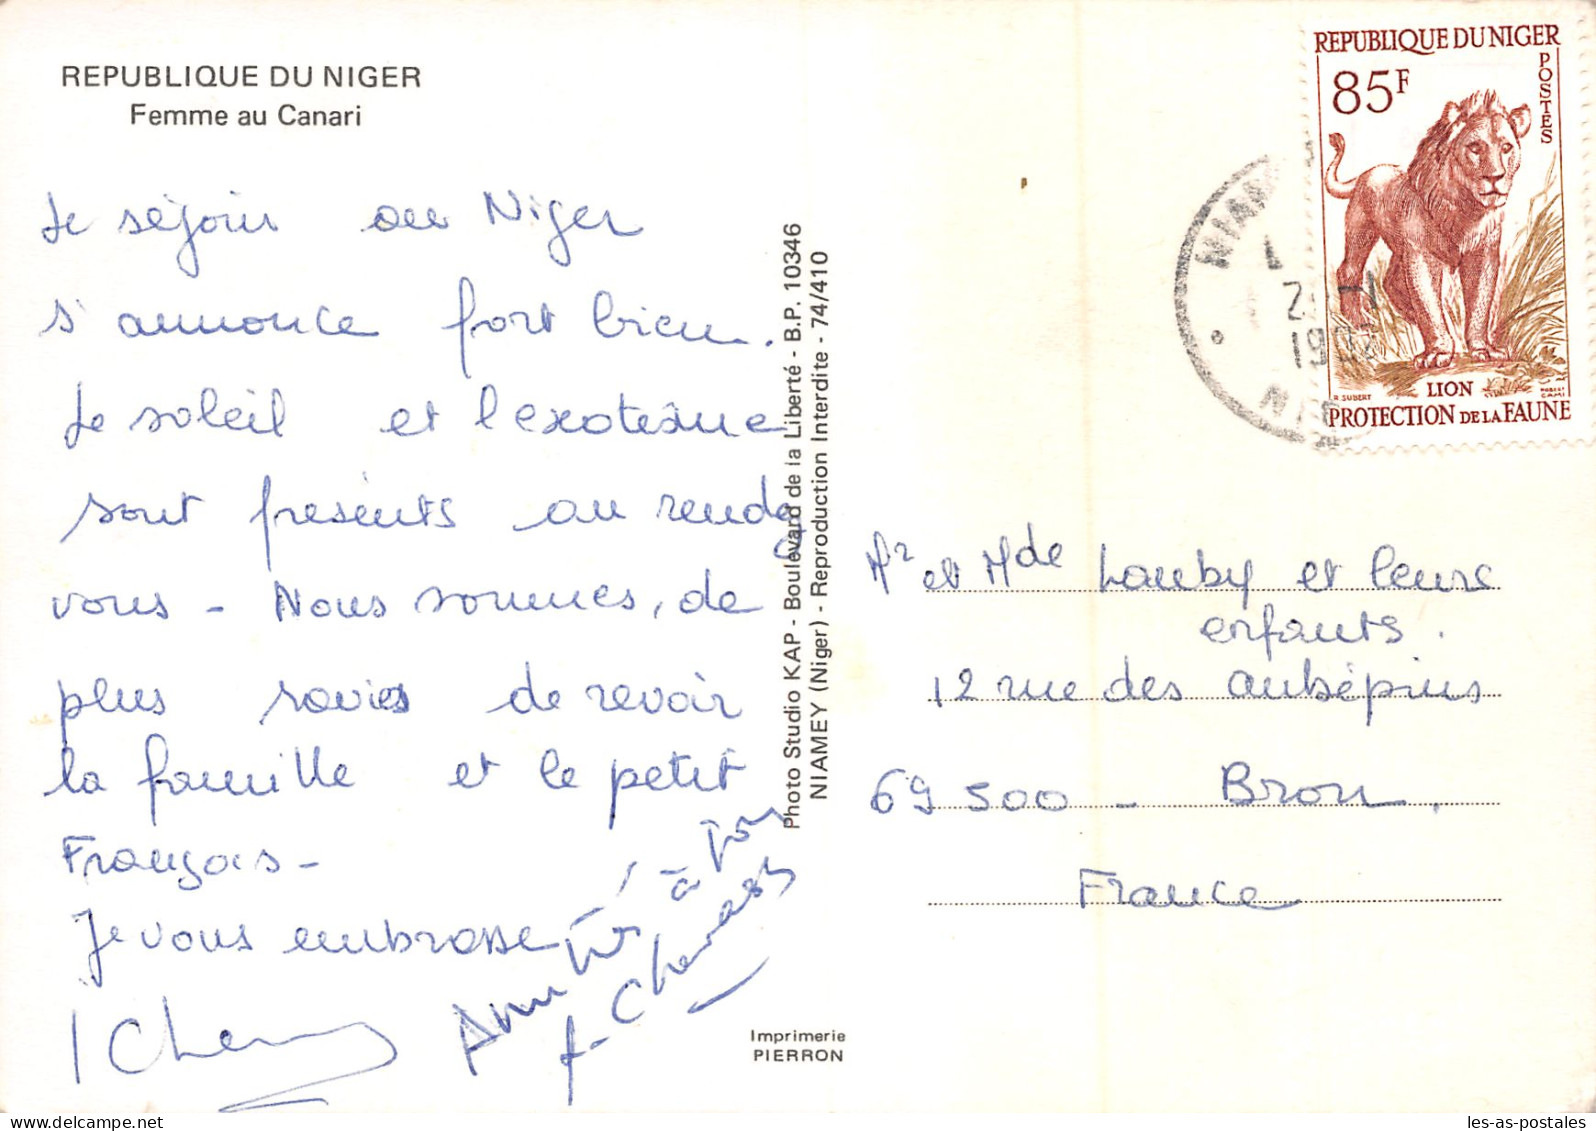 REPUBLIQUE DU NIGER
Femme au Canari
Le séjour au Niger
s'annonce fort bien.
Le soleil et l'exotisme
sont présents au rendez
vous - Nous sommes, de
plus ravies de revoir
la famille et le petit
François -
Je vous embrasse
Amitiés à tous
Photo Studio KAP - Boulevard de la Liberté - B.P. 10346
NIAMEY (Niger) - Reproduction Interdite - 74/410
Imprimerie
PIERRON
REPUBLIQUE DU NIGER
85F
POSTES
LION
R SUBERT
PROTECTION DE LA FAUNE
Mr et Mde Lauby et leurs
enfants.
12 rue des aubépins
69 500 - Bron.
France
les-as-postales